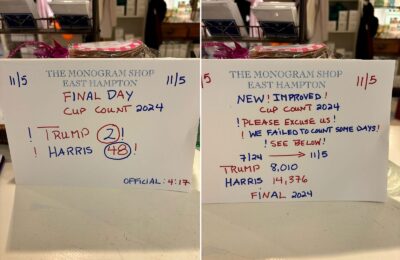 11/5 11/5
THE MONOGRAM SHOP
EAST HAMPTON
FINAL DAY
CUP COUNT 2024
! TRUMP 2 !
! HARRIS 48 !
OFFICIAL: 4:17
5 11/5
THE MONOGRAM SHOP
EAST HAMPTON
NEW! IMPROVED!
CUP COUNT 2024
! PLEASE EXCUSE US!
! WE FAILED TO COUNT SOME DAYS!
! SEE BELOW!
7/24 → 11/5
TRUMP 8,010
HARRIS 14,376
FINAL 2024